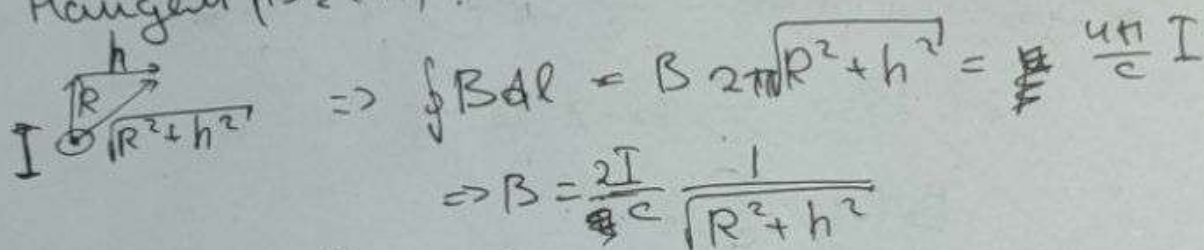 h
R
I √(R²+h²) => ∮Bdl = B 2π√(R²+h²) = 4π/c I
=> B = 2I/c 1/√(R²+h²)